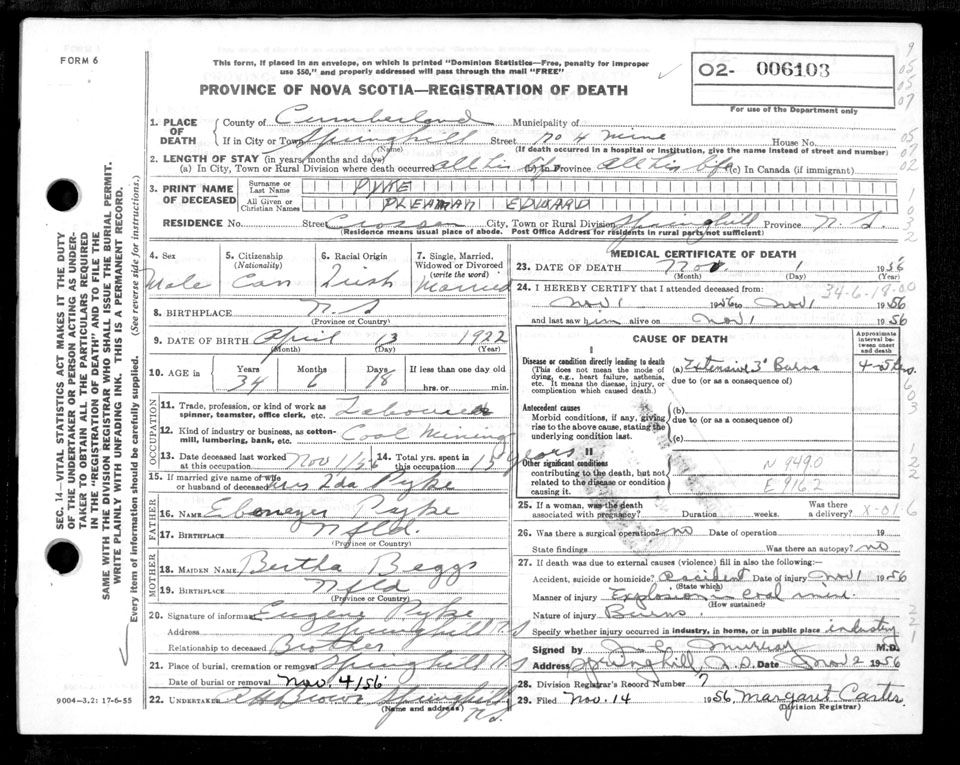 FORM 6
This form, if placed in an envelope, on which is printed "Dominion Statistics—Free, penalty for improper
use $50," and properly addressed will pass through the mail "FREE"
02- 006103
For use of the Department only
PROVINCE OF NOVA SCOTIA—REGISTRATION OF DEATH
SEC. 14—VITAL STATISTICS ACT MAKES IT THE DUTY
OF THE UNDERTAKER OR PERSON ACTING AS UNDER-
TAKER TO OBTAIN ALL THE PARTICULARS REQUIRED
IN THE "REGISTRATION OF DEATH" AND TO FILE THE
SAME WITH THE DIVISION REGISTRAR WHO SHALL ISSUE THE BURIAL PERMIT.
WRITE PLAINLY WITH UNFADING INK. THIS IS A PERMANENT RECORD.
Every item of information should be carefully supplied. (See reverse side for instructions.)
1. PLACE OF DEATH
County of Cumberland Municipality of
If in City or Town Springhill Street No 4 mine House No.
(Name) (If death occurred in a hospital or institution, give the name instead of street and number)
2. LENGTH OF STAY (in years, months and days)
(a) In City, Town or Rural Division where death occurred all his life (b) In Province All his life (c) In Canada (if immigrant)
3. PRINT NAME OF DECEASED
Surname or Last Name PYKE
All Given or Christian Names PLEAMAN EDWARD
RESIDENCE No. Street City, Town or Rural Division Springhill Province N. S.
(Residence means usual place of abode. Post Office Address for residents in rural parts not sufficient)
4. Sex
Male
5. Citizenship
(Nationality)
Can
6. Racial Origin
Irish
7. Single, Married,
Widowed or Divorced
(write the word)
Married
8. BIRTHPLACE N. S
(Province or Country)
9. DATE OF BIRTH April 13 1922
(Month) (Day) (Year)
10. AGE
Years Months Days If less than one day old
34 6 18 hrs. or min.
OCCUPATION
11. Trade, profession, or kind of work as
spinner, teamster, office clerk, etc. Labourer
12. Kind of industry or business, as cotton-
mill, lumbering, bank, etc. Coal Mining
13. Date deceased last worked
at this occupation Nov 1/56
14. Total yrs. spent in
this occupation 15 years
15. If married give name of wife
or husband of deceased Mrs Ida Pyke
FATHER
16. Name Ebenezer Pyke
17. Birthplace Nfld.
(Province or Country)
MOTHER
18. Maiden Name Bertha Beggs
19. Birthplace Nfld
(Province or Country)
20. Signature of informant Eugene Pyke
Address Springhill N.S
Relationship to deceased Brother
21. Place of burial, cremation or removal Springhill N.S
Date of burial or removal Nov 4/56
22. Undertaker Springhill
(Name and address) N.S.
9004-3.2: 17-6-55
MEDICAL CERTIFICATE OF DEATH
23. DATE OF DEATH Nov. 1 1956
(Month) (Day) (Year)
34-6-18-00
24. I HEREBY CERTIFY that I attended deceased from:
Nov 1 1956 to Nov 1 1956
and last saw him alive on Nov 1 1956
CAUSE OF DEATH
Approximate
interval be-
tween onset
and death
I
Disease or condition directly leading to death
(This does not mean the mode of
dying, e.g., heart failure, asthenia,
etc. It means the disease, injury, or
complication which caused death.)
(a) Extensive 3° Burns
4-5 hrs.
due to (or as a consequence of)
Antecedent causes
Morbid conditions, if any, giving
rise to the above cause, stating the
underlying condition last.
(b)
due to (or as a consequence of)
(c)
II
Other significant conditions
contributing to the death, but not
related to the disease or condition
causing it.
N 9490
E 9162
25. If a woman, was the death
associated with pregnancy? Duration weeks. Was there
a delivery? X-01-6
26. Was there a surgical operation? no Date of operation 19
State findings Was there an autopsy? no
27. If death was due to external causes (violence) fill in also the following:
Accident, suicide or homicide? Accident Date of injury Nov 1 1956
(State which)
Manner of injury Explosion in Coal mine.
(How sustained)
Nature of injury Burns.
Specify whether injury occurred in industry, in home, or in public place industry
Signed by J. C. Murray M.D.
Address Springhill, N.S. Date Nov 2 1956
28. Division Registrar's Record Number 7
29. Filed Nov. 14 1956 Margaret Carter
(Division Registrar)